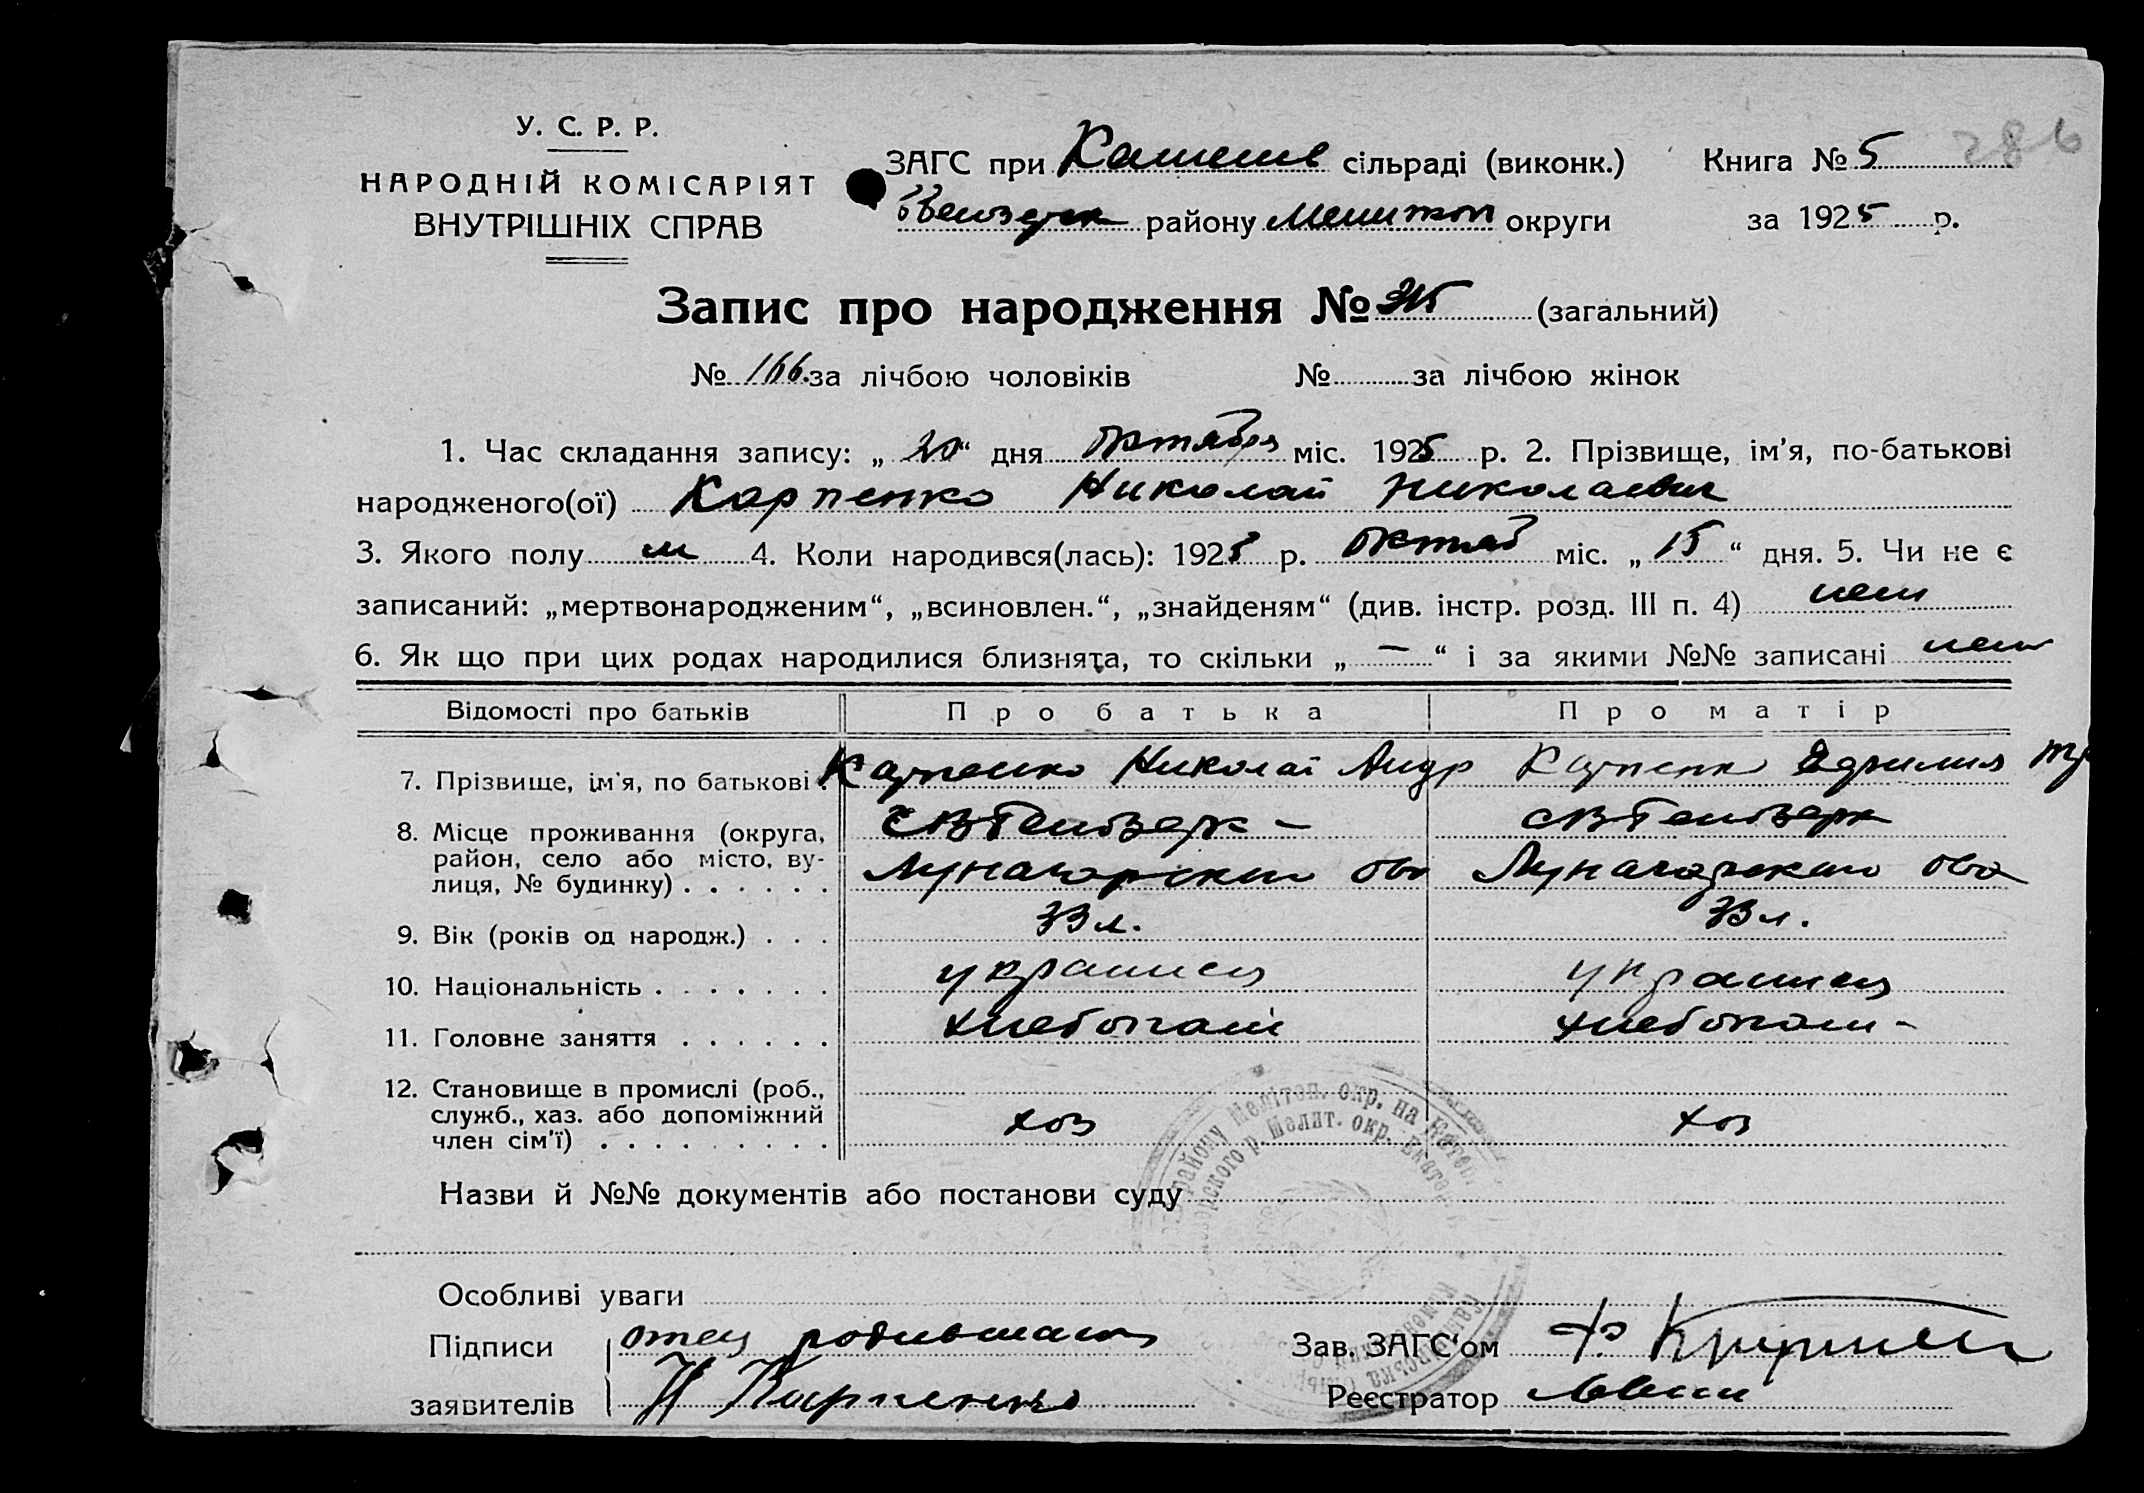 У. С. Р. Р.
НАРОДНІЙ КОМІСАРІЯТ
ВНУТРІШНІХ СПРАВ
ЗАГС при сільраді (виконк.) Книга № 5 286
району округи за 1925 р.
Запис про народження № (загальний)
№ 166. за лічбою чоловіків № за лічбою жінок
1. Час складання запису: „ 20 “ дня октября міс. 1925 р. 2. Прізвище, ім'я, по-батькові
народженого(ої) Карпенко Николай Николаевич
3. Якого полу м 4. Коли народився(лась): 1925 р. октяб міс. „ 15 “ дня. 5. Чи не є
записаний: „мертвонародженим“, „всиновлен.“, „знайденям“ (див. інстр. розд. III п. 4) нет
6. Як що при цих родах народилися близнята, то скільки „ — “ і за якими №№ записані нет
Відомості про батьків Про батька Про матір
7. Прізвище, ім'я, по батькові . Карпенко Николай Андр Карпенк
8. Місце проживання (округа,
район, село або місто, ву-
лиця, № будинку) . . . . . .
Луначарского Луначарского
9. Вік (років од народж.) . . . 33 л. 33 л.
10. Національність . . . . . . . украинец украинец
11. Головне заняття . . . . . . хлебопаш хлебопаш-
12. Становище в промислі (роб.,
служб., хаз. або допоміжний
член сім'ї) . . . . . . . . . хоз хоз
району Мелітоп. окр. на Катер
ского р. Мелит. окр. Екатер
Назви й №№ документів або постанови суду
Особливі уваги
Підписи отец родившагося Зав. ЗАГС'ом
заявителів Н Карпенко Реєстратор